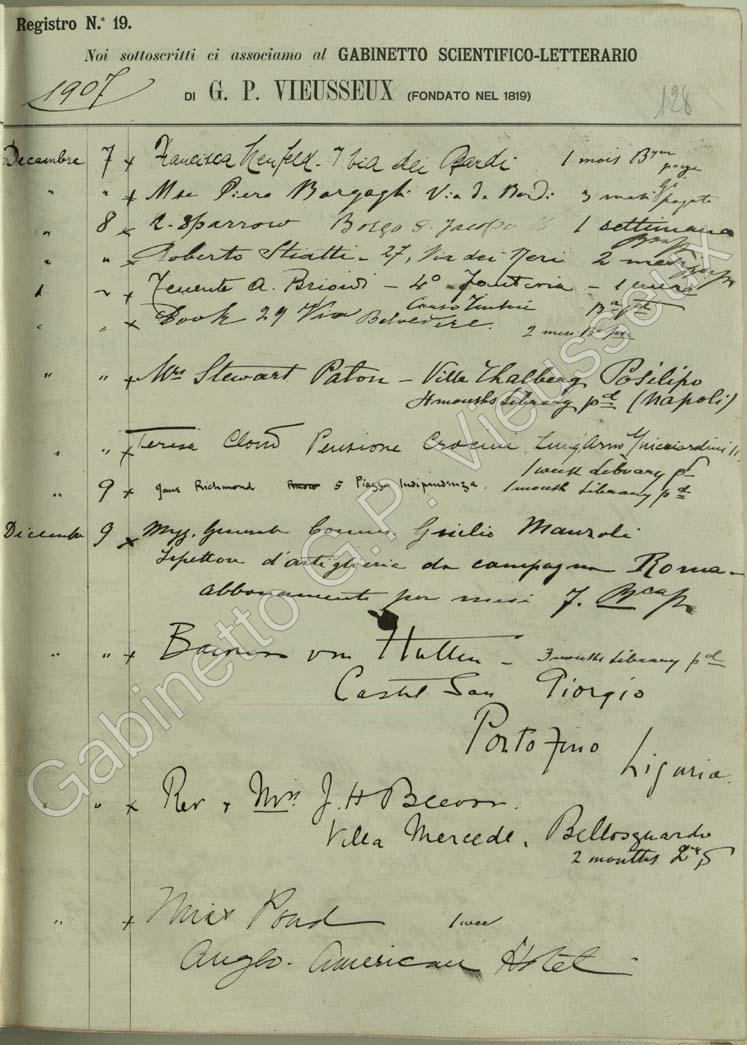 Registro N.º 19.
Noi sottoscritti ci associamo al GABINETTO SCIENTIFICO-LETTERARIO
1907 DI G. P. VIEUSSEUX (FONDATO NEL 1819) 128
Decembre 7 x Francisca Neufeld - 7 Via dei Bardi 1 mois
" " x Piero Via de Bardi 3 mesi pagato
" 8 x Sparrow Borgo S. Jacopo 1 settimana
" " x Roberto Stiatti - 27, Via dei Neri 2 mesi
" x Tenente A. - 4º Fanteria - 1 mese
" " x Book 29 Via Belvedere. 2 mesi
" " x Mrs Stewart Paton - Villa Thalberg Posilipo
4 months Library pd (Napoli)
" " x Teresa Pensione Crocini Lung'Arno Guicciardini 11
1 week Library pd
" 9 x Jane Richmond 5 Piazza Indipendenza. 1 month Library pd
Dicembre 9 x Giulio
Ispettore d'artiglieria da campagna Roma -
abbonamento per mesi 7.
" " x von Hutten - 3 months Library pd
Castel San Giorgio
Portofino Liguria.
" " x Rev & Mrs J. H.
Villa Mercede, Bellosguardo
2 months
" x Miss Pond 1 week
Anglo-American Hotel
Gabinetto G.P. Vieusseux